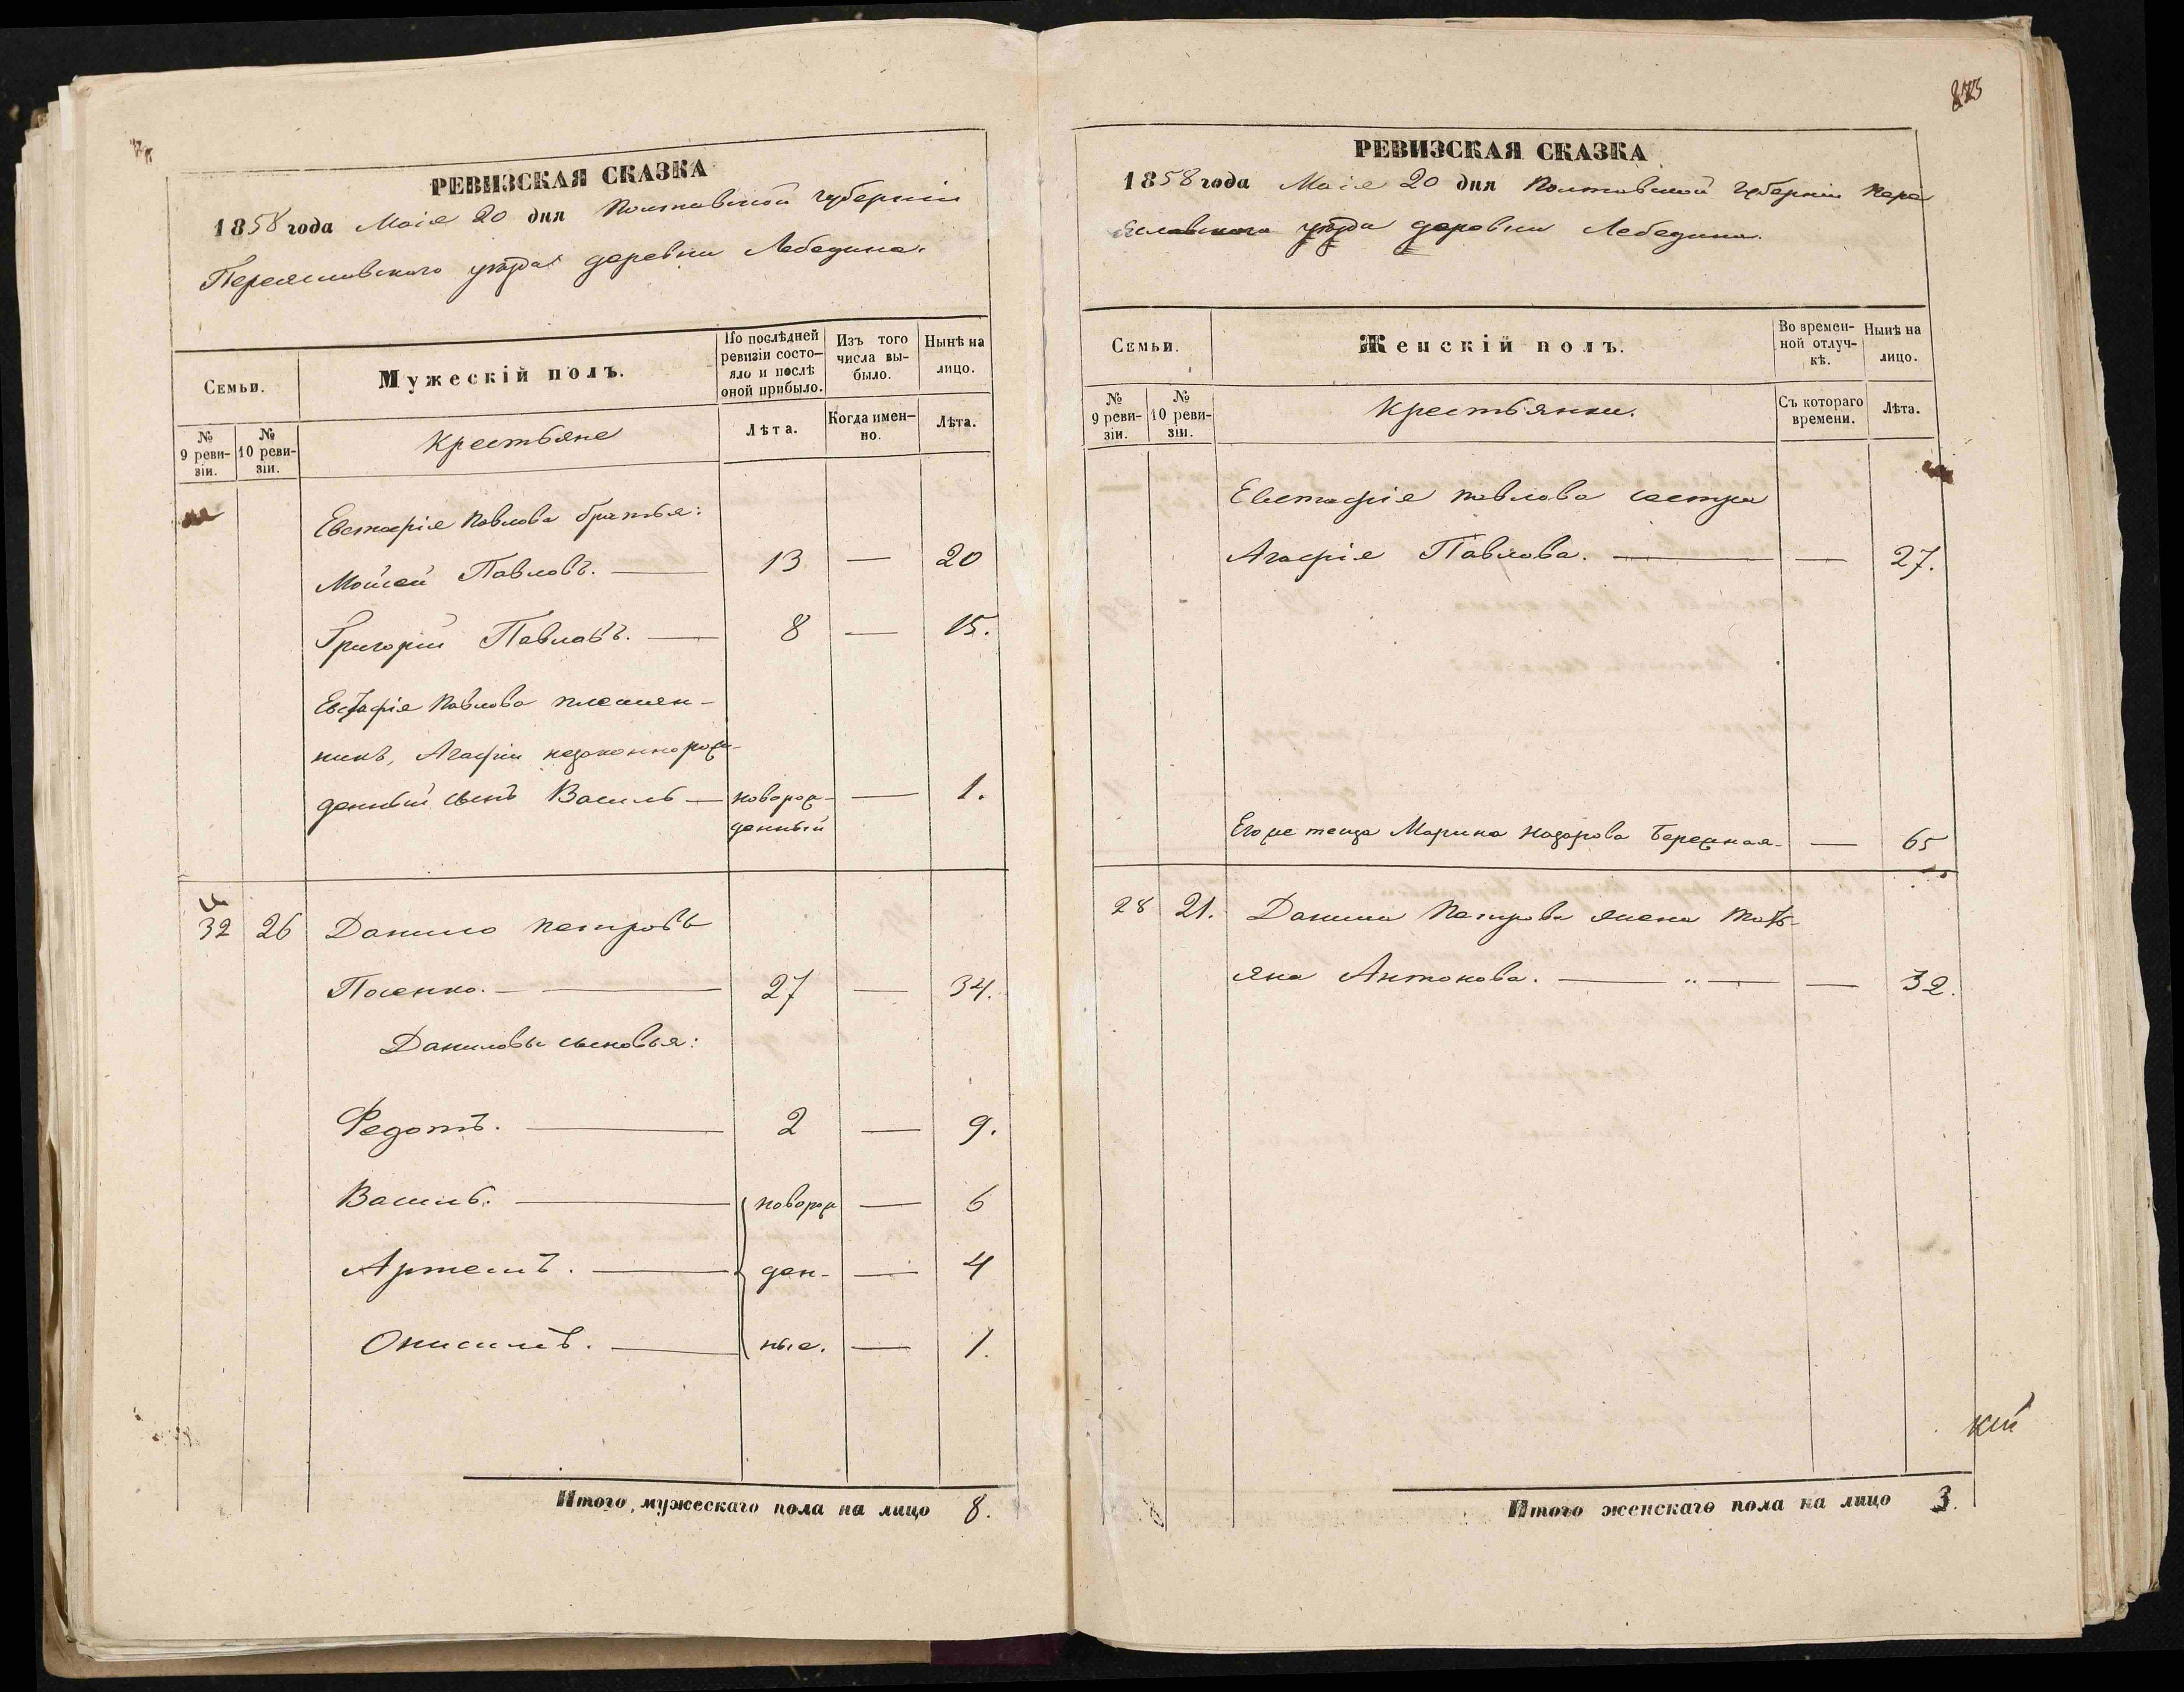 РЕВИЗСКАЯ СКАЗКА
1858 года Маія 20 дня Полтавской губерніи
Переяславского уѣзда деревни Лебедина.
Семьи.
Мужескій полъ.
По послѣдней ревизіи состояло и послѣ оной прибыло.
Изъ того числа выбыло.
Нынѣ на лицо.
№ 9 ревизіи.
№ 10 ревизіи.
Крестьяне
Лѣта.
Когда именно.
Лѣта.
Евстафія Павлова братья:
Мойсей Павловъ. — 13 — 20
Григорій Павловъ. — 8 — 15.
Евстафія Павлова племен-
никъ, Агафіи незаконнорож-
денный сынъ Василь — новорож- — 1.
денный
32 26 Данило Петровъ
— 27 — 34.
Даниловы сыновья:
Федотъ. — 2 — 9.
Василь. — новорож — 6
Артемъ. — ден- — 4
Онисимъ. — ные. — 1.
Итого мужескаго пола на лицо 8.
РЕВИЗСКАЯ СКАЗКА
1858 года Маія 20 дня Полтавской губерніи Пере
яславского уѣзда деревни Лебедина.
Семьи.
Женскій полъ.
Во временной отлучкѣ.
Нынѣ на лицо.
№ 9 ревизіи.
№ 10 ревизіи.
Крестьянки.
Съ котораго времени.
Лѣта.
Евстафія Павлова сестра
Агафія Павлова. — — 27.
Его же теща Марина Назарова Бережная. — 65
28 21. Данила Петрова жена Тать-
яна Антонова. — „ — — 32.
кій
Итого женскаго пола на лицо 3.